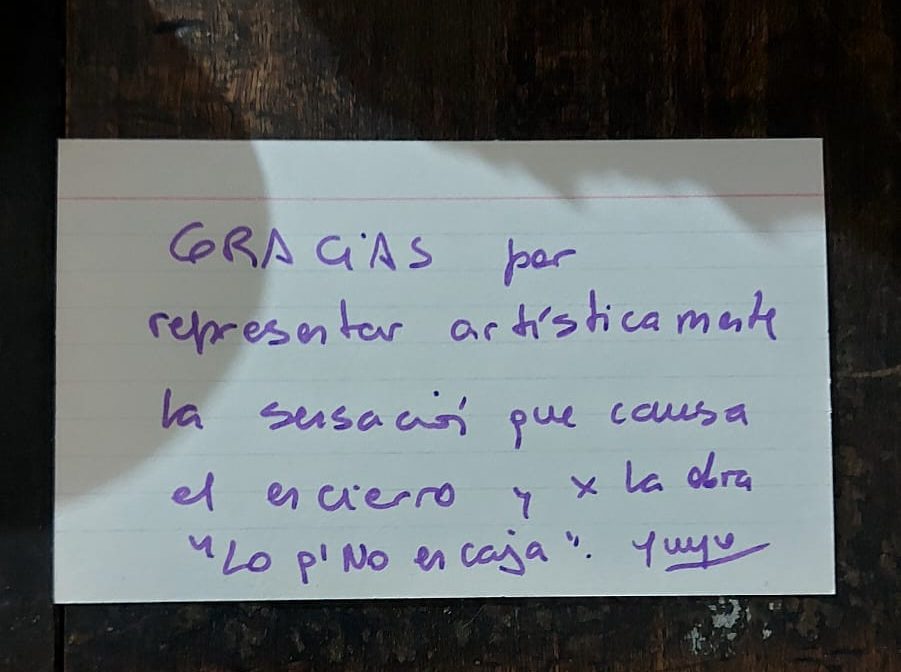 GRACiAS por
representar artísticamente
la sensación que causa
el encierro y x la obra
"Lo q' No encaja". Yuyu